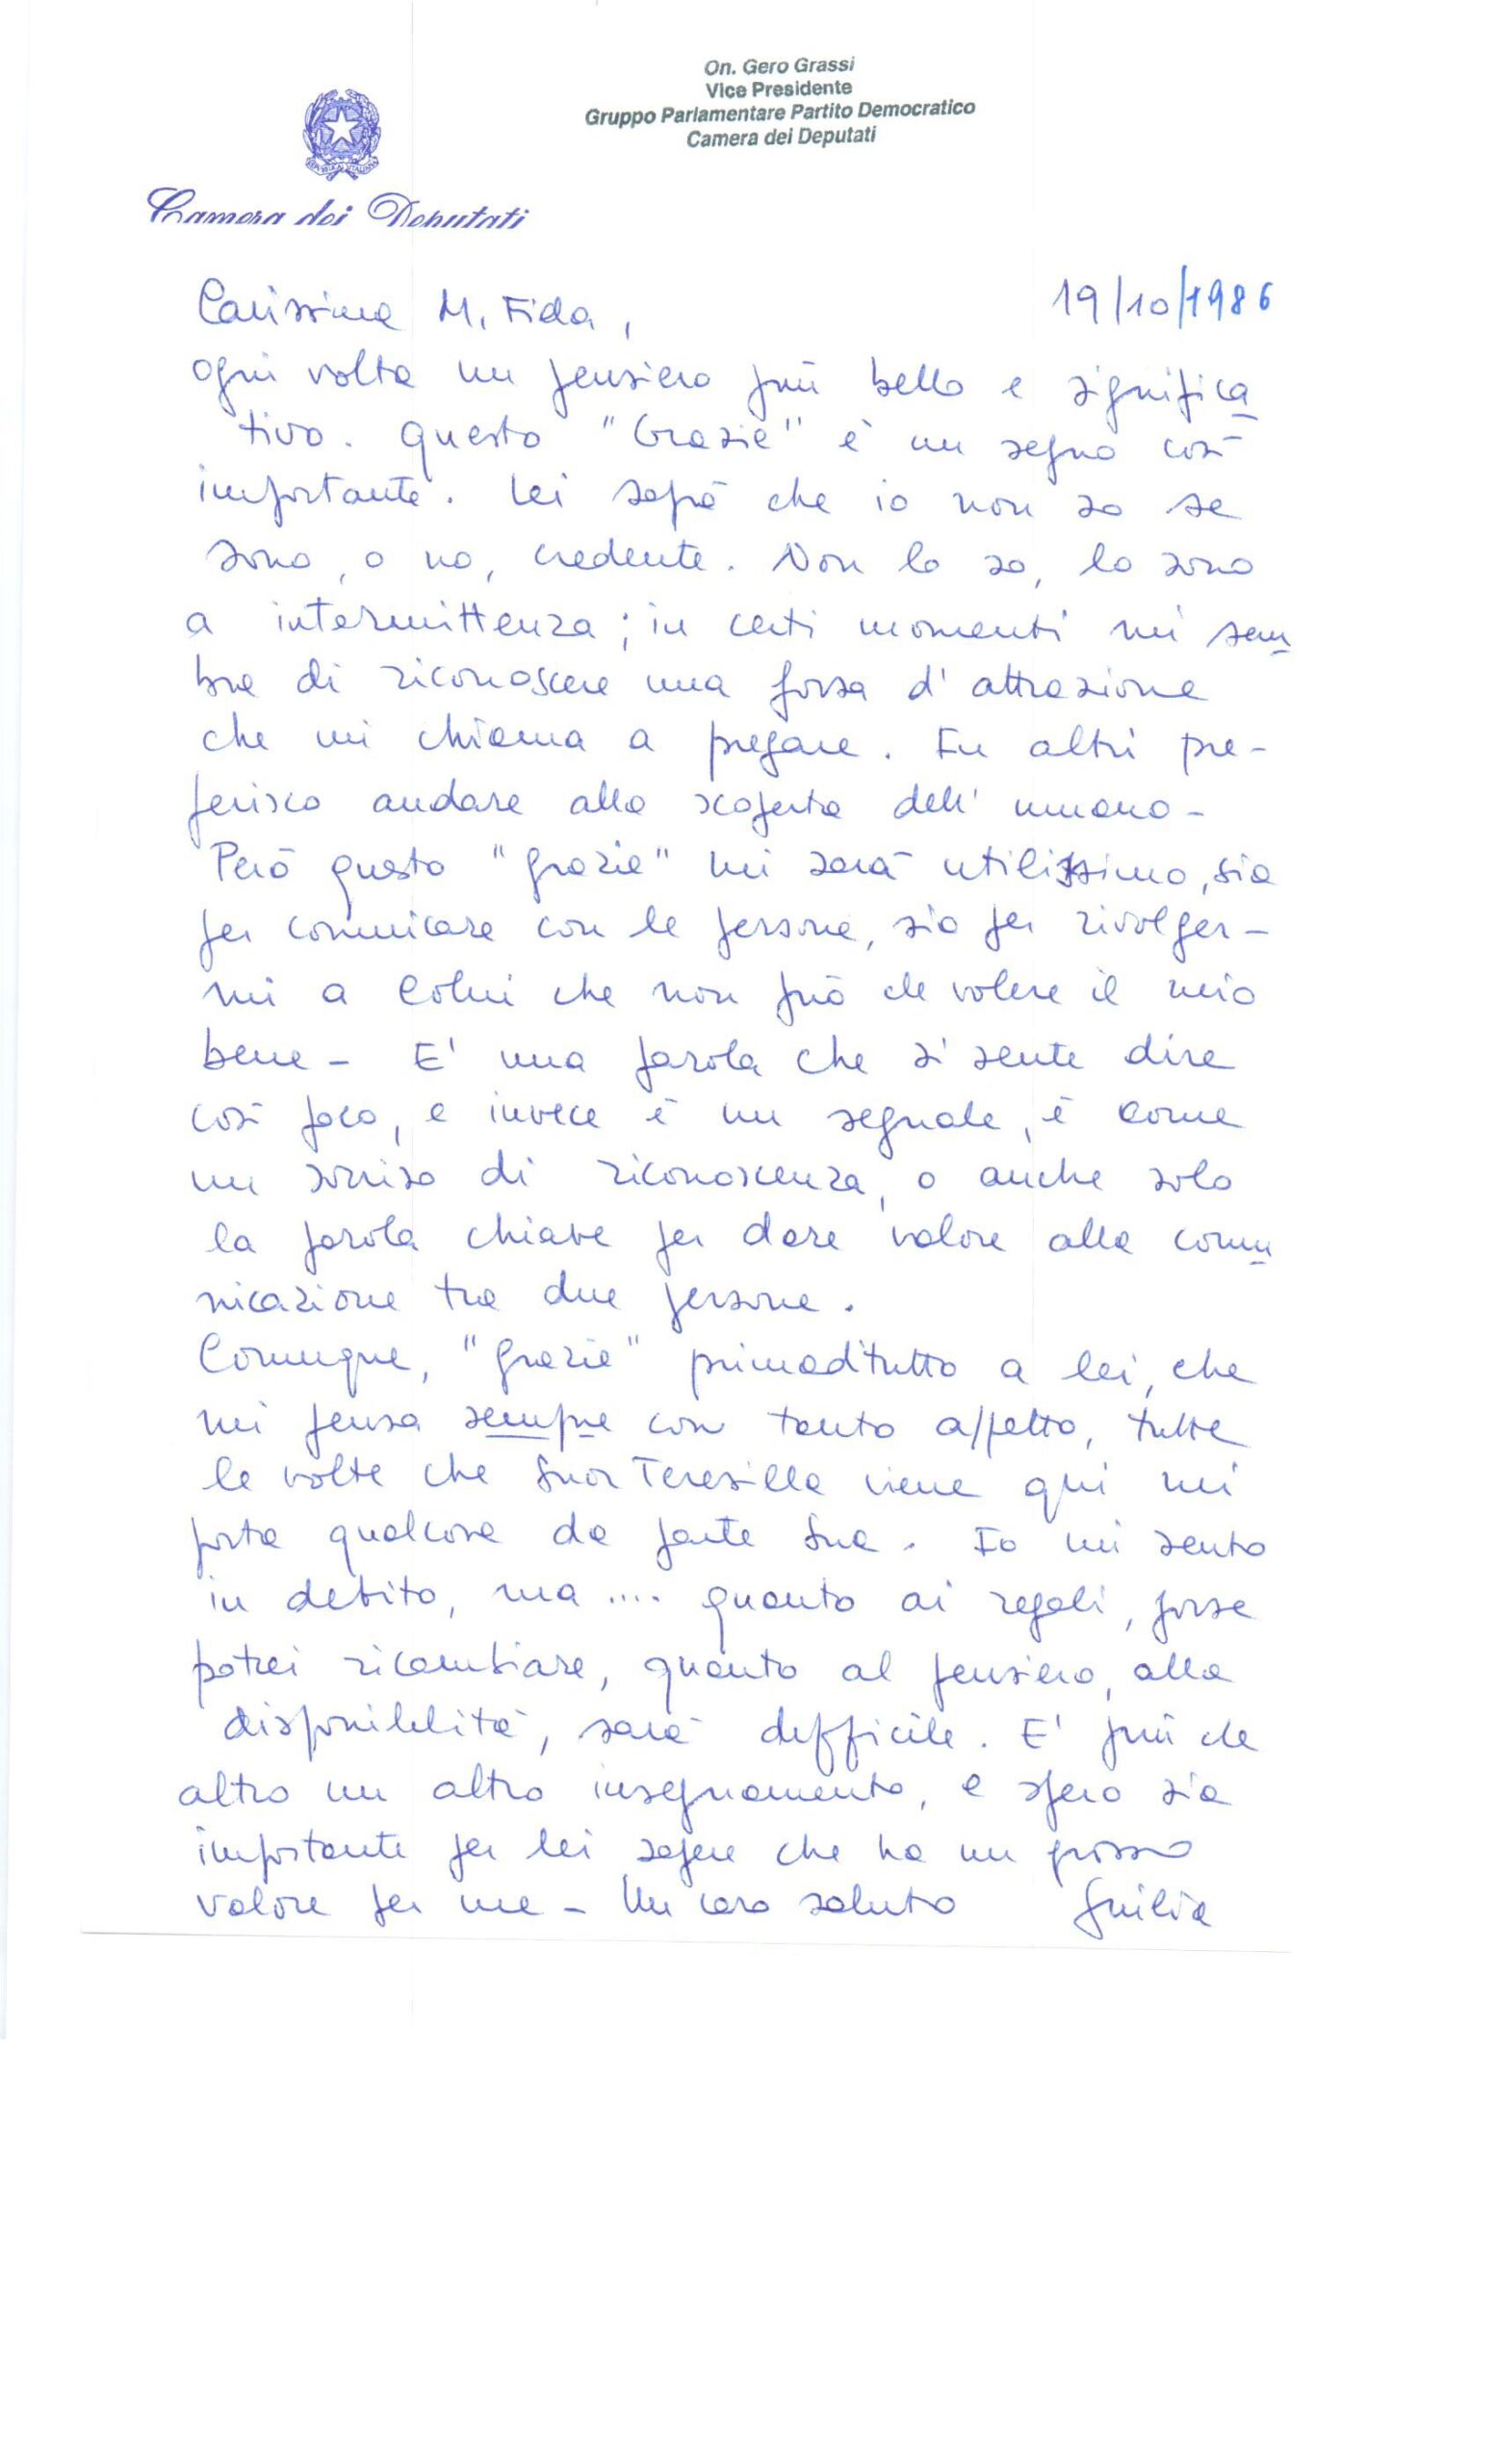 On. Gero Grassi
Vice Presidente
Gruppo Parlamentare Partito Democratico
Camera dei Deputati
Camera dei Deputati
19/10/1986
Carissima M. Fida,
ogni volta un pensiero più bello e significa
tivo. Questo "Grazie" è un segno così
importante. Lei saprà che io non so se
sono, o no, credente. Non lo so, lo sono
a intermittenza; in certi momenti mi sem
bra di riconoscere una forza d'attrazione
che mi chiama a pregare. In altri pre-
ferisco andare alla scoperta dell'umano -
Però questo "grazie" mi sarà utilissimo, sia
per comunicare con le persone, sia per rivolger-
mi a Colui che non può che volere il mio
bene - E' una parola che si sente dire
così poco, e invece è un segnale, è come
un sorriso di riconoscenza, o anche solo
la parola chiave per dare valore alla comu
nicazione tra due persone.
Comunque, "grazie" primaditutto a lei, che
mi pensa sempre con tanto affetto, tutte
le volte che Suor Teresilla viene qui mi
porta qualcosa da parte Sua. Io mi sento
in debito, ma .... quanto ai regali, forse
potrei ricambiare, quanto al pensiero, alla
disponibilità, sarà difficile. E' più che
altro un altro insegnamento, e spero sia
importante per lei sapere che ha un grosso
valore per me - Un caro saluto Giulia